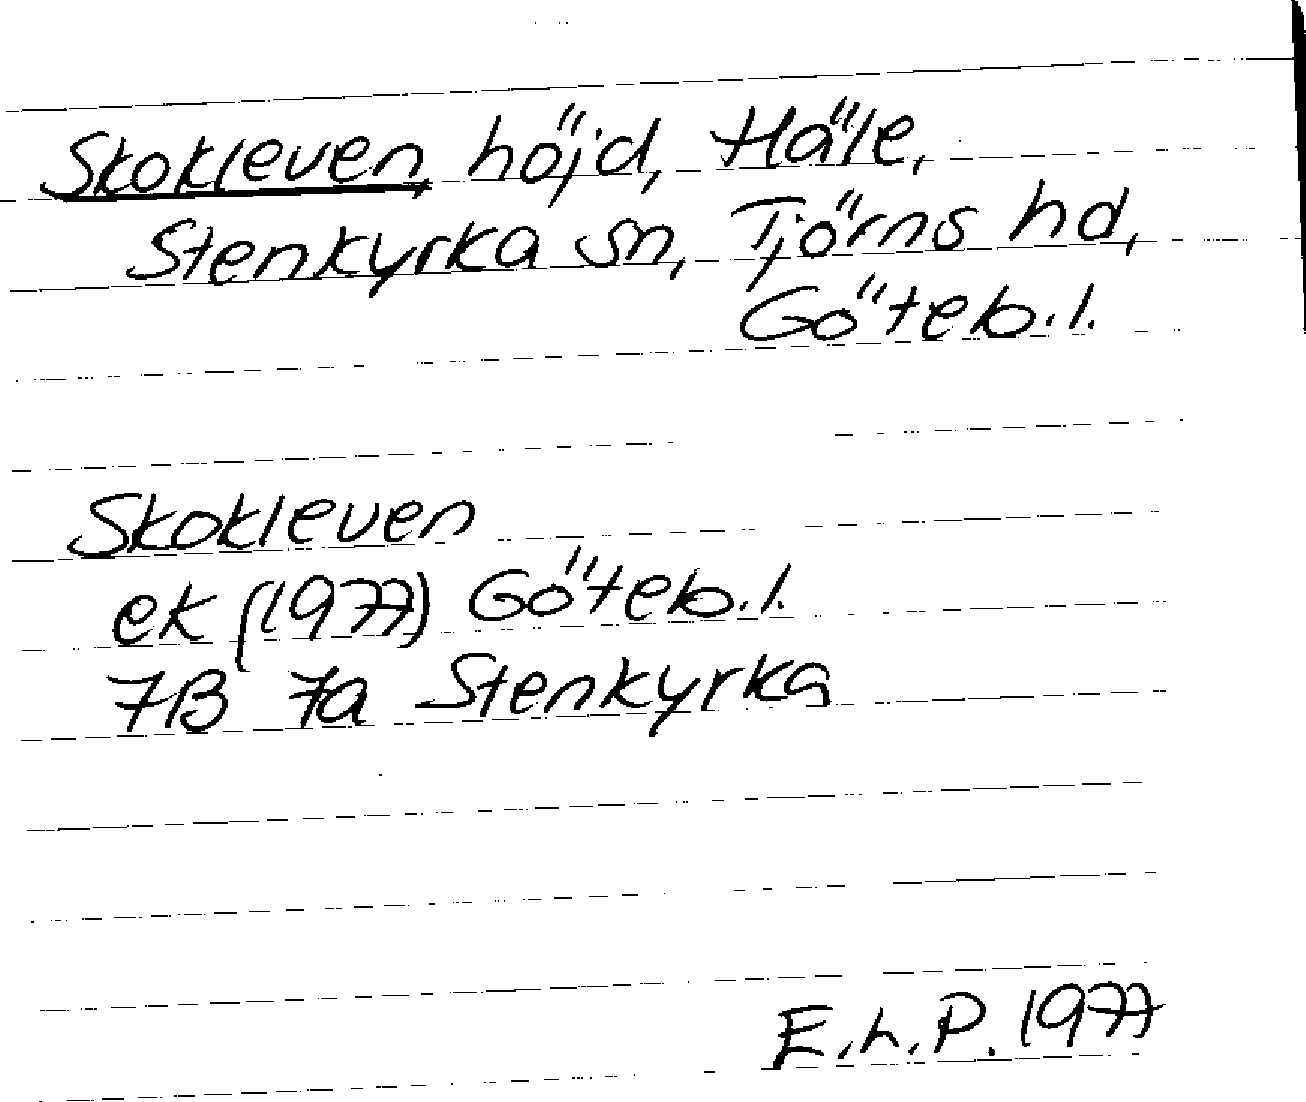 Skokleven, höjd, Häle,
Stenkyrka sn, Tjörns hd,
Göteb. l.
Skokleven
ek (1977) Göteb. l.
7B 7a Stenkyrka
E.L.P. 1977